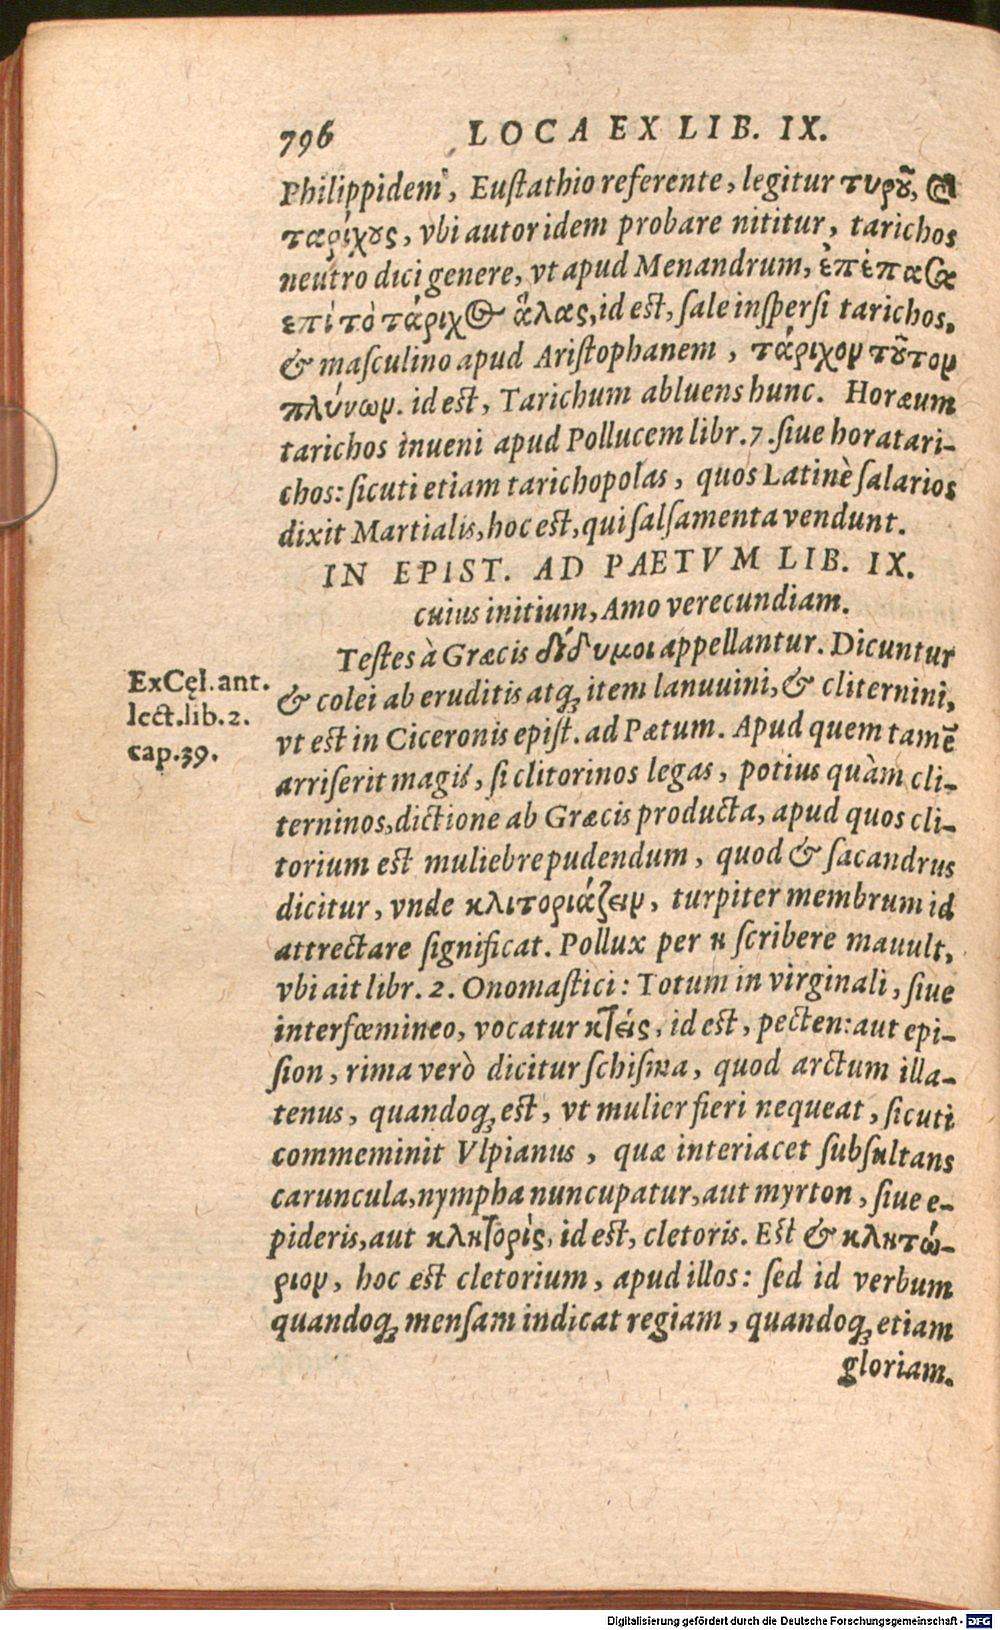 796 LOCA EX LIB. IX.
Philippidem, Eustathio referente, legitur τυροῦ, &
ταρίχους, vbi autor idem probare nititur, tarichos
neutro dici genere, vt apud Menandrum, ἐπέπασα
ἐπὶ τὸ τάριχος ἅλας, id est, sale inspersi tarichos,
& masculino apud Aristophanem, τάριχον τοῦτον
πλύνων. id est, Tarichum abluens hunc. Horæum
tarichos inueni apud Pollucem libr. 7. siue horatari-
chos: sicuti etiam tarichopolas, quos Latinè salarios
dixit Martialis, hoc est, qui salsamenta vendunt.
IN EPIST. AD PAETVM LIB. IX.
cuius initium, Amo verecundiam.
Testes à Græcis δίδυμοι appellantur. Dicuntur
ExCęl. ant.
lect. lib. 2.
cap. 39.
& colei ab eruditis atq; item lanuuini, & cliternini,
vt est in Ciceronis epist. ad Pætum. Apud quem tamē
arriserit magis, si clitorinos legas, potius quàm cli-
terninos, dictione ab Græcis producta, apud quos cli-
torium est muliebre pudendum, quod & sacandrus
dicitur, vnde κλιτοριάζειν, turpiter membrum id
attrectare significat. Pollux per η scribere mauult,
vbi ait libr. 2. Onomastici: Totum in virginali, siue
interfœmineo, vocatur κτείς, id est, pecten: aut epi-
sion, rima verò dicitur schisma, quod arctum illa-
tenus, quandoq; est, vt mulier fieri nequeat, sicuti
commeminit Vlpianus, quæ interiacet subsultans
caruncula, nympha nuncupatur, aut myrton, siue e-
pideris, aut κλητορὶς, id est, cletoris. Est & κλητώ-
ριον, hoc est cletorium, apud illos: sed id verbum
quandoq; mensam indicat regiam, quandoq; etiam
gloriam.
Digitalisierung gefördert durch die Deutsche Forschungsgemeinschaft - DFG